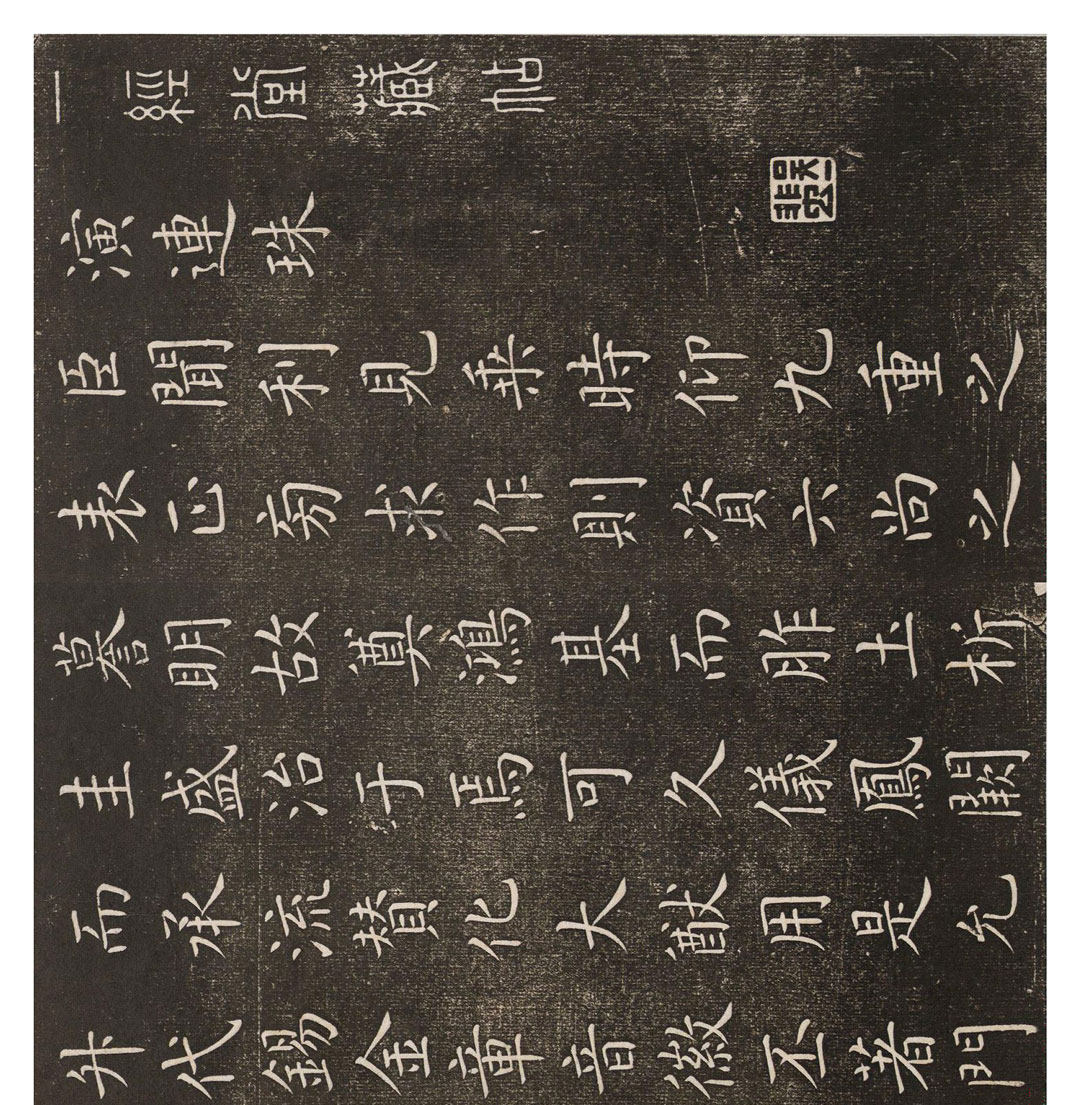 一經藏帖
演連珠
臣聞利見乘時仰九重之
表正旁求作則資六尚之
詧明故奠鴻基而胙土析
圭盛治于焉可久儀鳳闕
而承流贊化大猷用是允
升代錫金章音徽丕著門